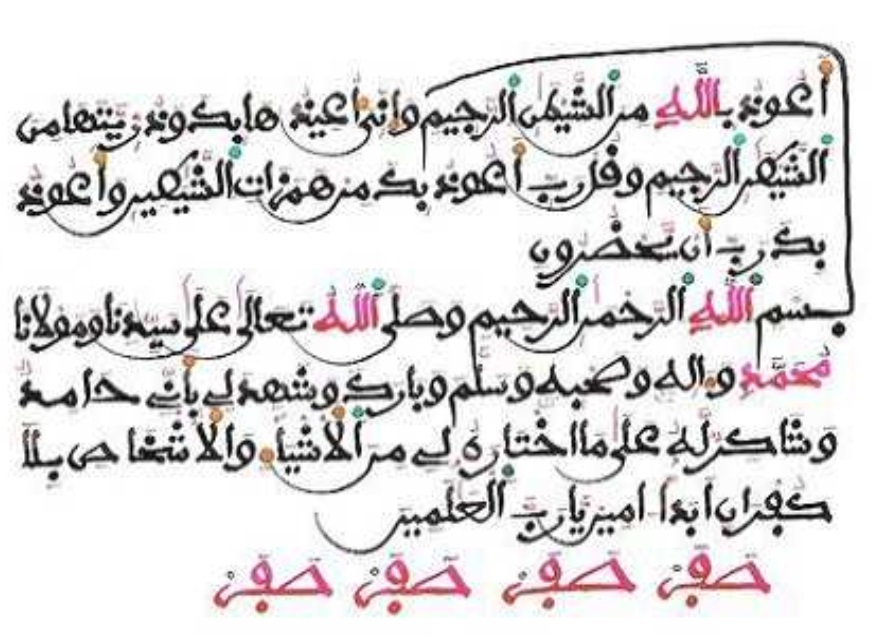 أعوذ بالله من الشيطن الرجيم وإني أعيذها بك وذريتها من
الشيطن الرجيم وقل رب أعوذ بك من همزات الشيطين وأعوذ
بك رب أن يحضرون
بسم الله الرحمن الرحيم وصلى الله تعالى على سيدنا ومولانا
محمد وءاله وصحبه وسلم وبارك وشهد لي بأني حامد
وشاكر له على ما اختاره لي من الأشياء والأشخاص بلا
كفران أبدا امين يا رب العلمين